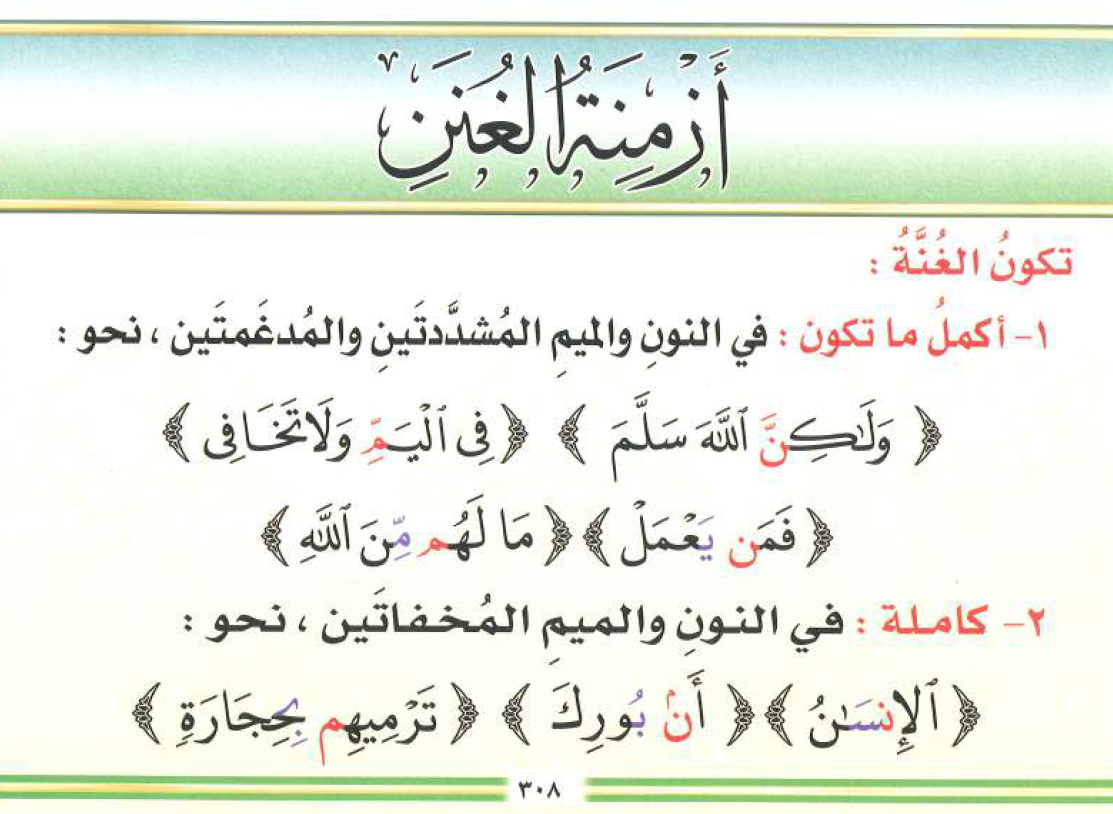 أَزْمِنَةُ الغُنَنِ
تكونُ الغُنَّةُ :
١- أكملُ ما تكون : في النونِ والميمِ المُشدَّدتَينِ والمُدغَمتَين ، نحو :
﴿ وَلَـٰكِنَّ ٱللَّهَ سَلَّمَ ﴾ ﴿ فِى ٱلْيَمِّ وَلَا تَخَافِى ﴾
﴿ فَمَن يَعْمَلْ ﴾ ﴿ مَا لَهُم مِّنَ ٱللَّهِ ﴾
٢- كاملة : في النونِ والميمِ المُخفاتَين ، نحو :
﴿ ٱلْإِنسَـٰنُ ﴾ ﴿ أَنۢ بُورِكَ ﴾ ﴿ تَرْمِيهِم بِحِجَارَةٍ ﴾
٣٠٨